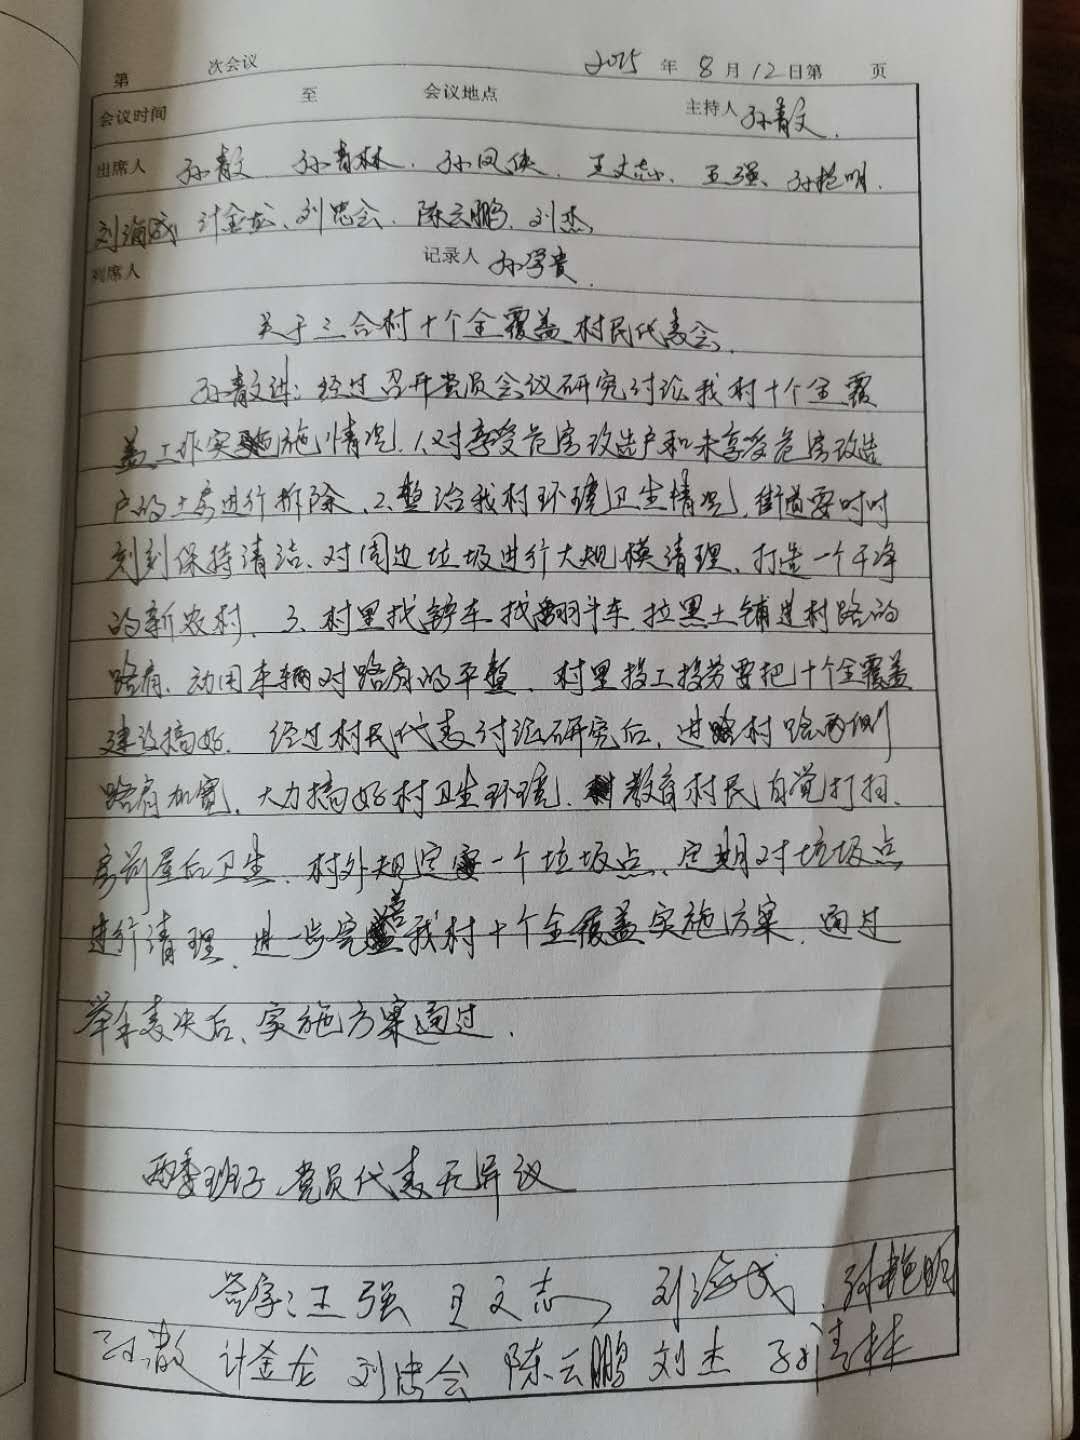 第 次会议 2015 年 8 月 12 日第 页
会议时间 至 会议地点 主持人 孙青文.
出席人 孙青文 孙青林. 孙凤侠. 王文志. 王强、孙艳明.
刘海成 计金龙、刘忠会. 陈云鹏. 刘杰.
列席人 记录人 孙学贵.
关于三合村十个全覆盖村民代表会.
孙青文讲: 经过召开党员会议研究讨论我村十个全覆
盖工作实施情况. 1.对享受危房改造户和未享受危房改造
户的土房进行拆除. 2.整治我村环境卫生情况, 街道要时时
刻刻保持清洁. 对周边垃圾进行大规模清理. 打造一个干净
的新农村. 3、村里找铲车 找翻斗车 拉黑土铺进村路的
路肩. 动用车辆对路肩的平整. 村里投工投劳要把十个全覆盖
建设搞好. 经过村民代表讨论研究后, 进村路两侧
路肩加宽. 大力搞好村卫生环境. 教育村民自觉打扫.
房前屋后卫生. 村外规定一个垃圾点. 定期对垃圾点
进行清理. 进一步完善我村十个全覆盖实施方案. 通过
举手表决后、实施方案通过.
两委班子、党员代表无异议
签字: 王强 王文志 刘海成 孙艳明
计金龙 刘忠会 陈云鹏 刘杰 孙清林